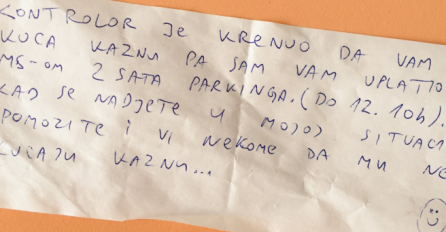 KONTROLOR JE KRENUO DA VAM
KUCA KAZNU PA SAM VAM UPLATIO
MS-OM 2 SATA PARKINGA. (DO 12.10h).
KAD SE NADJETE U MOJOJ SITUACI
POMOZITE I VI NEKOME DA MU NE
KUCAJU KAZNU...